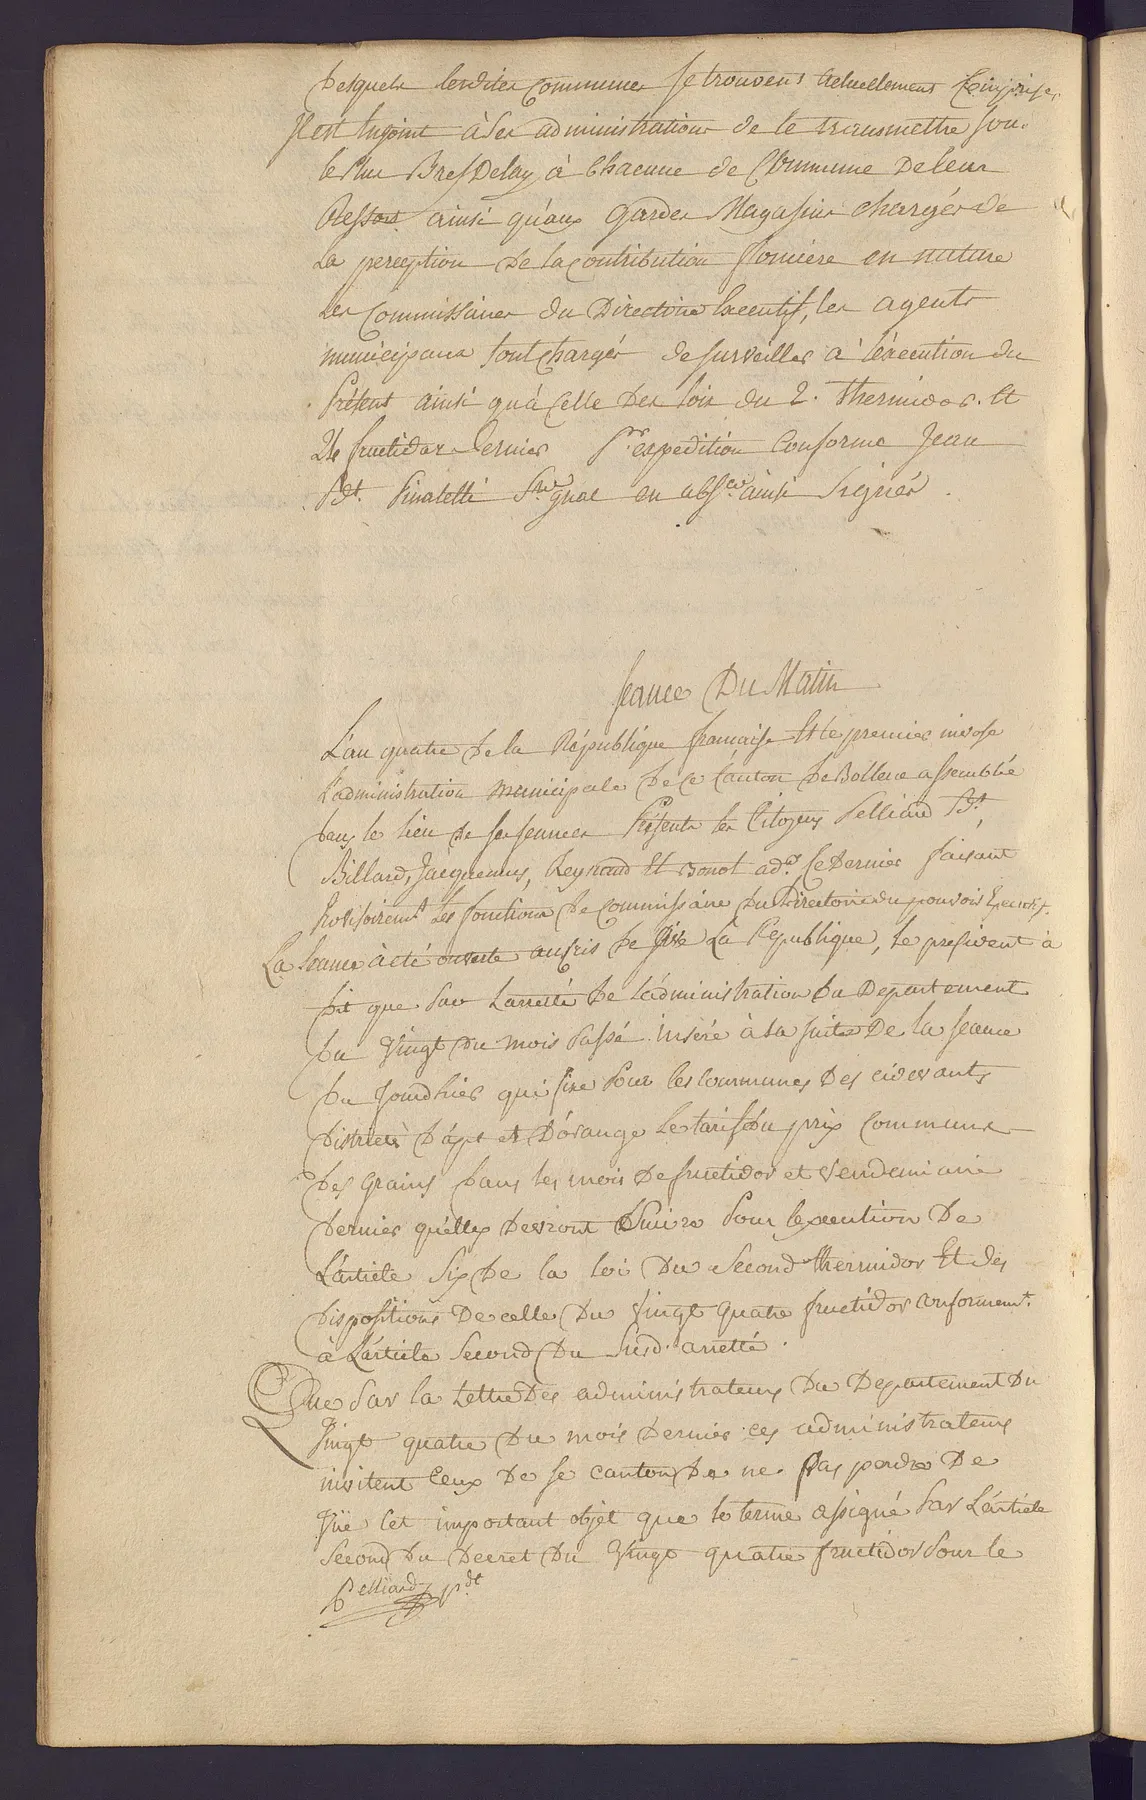 desquels lesdites Communes se trouvent actuellement Comprises,
Il est Enjoint à Ses administrations de le transmettre sous
le Plus Bref Delay à Chacune de Commune De leur
Ressort ainsi qu'aux Gardes Magasins chargés de
La perception de la Contribution fonciere en nature
Les Commissaires du Directoire Executif, les agents
municipaux sont Chargés de surveiller à l'éxecution du
Présent ainsi qu'à Celle des lois du 2. thermidor. Et
24 fructidor dernier Pr. expedition Conforme Jean
Bt. Pinatelli Sre gnal en absce ainsi Signés.
Seance Du Matin
L'an quatre de la République francaise Et le premier nivose
L'administration municipale de Ce Canton de Bollene assemblée
dans le lieu de ses seances Présents les Citoyens Pelliard Pdt,
Billard, Jacquemus, Reynaud Et Bonot ads. Ce Dernier faisant
Provisoiremt. Les fonctions de Commissaire du Directoire du pouvoir Executif.
La Seance à été ouverte aux cris de Vive La Republique, le president à
dit que Par L'arretté de L'administration du Departement
du Vingt du mois Passé inséré à la suite De la seance
du Jourdhier qui fixe Pour les Communes Des cidevants
Districts D'apt et D'orange Le tarif du prix Commune
des Grains dans les mois De fructidor et vendemiaire
dernier qu'elles Devront Suivre Pour l'execution De
L'article Six de la loi Du Second thermidor Et des
dispositions De celle du Vingt quatre fructidor Conforment.
à L'article Second Du Susd. arretté.
Que Par la Lettre Des administrateurs Du Departement Du
Vingt quatre Du mois Dernier ces administrateurs
invitent Ceux De se Canton De ne Pas perdre De
Vüe Cet important objet que le terme assigné Par L'article
Second Du Decret Du Vingt quatre fructidor Pour le
Pelliard Pdt